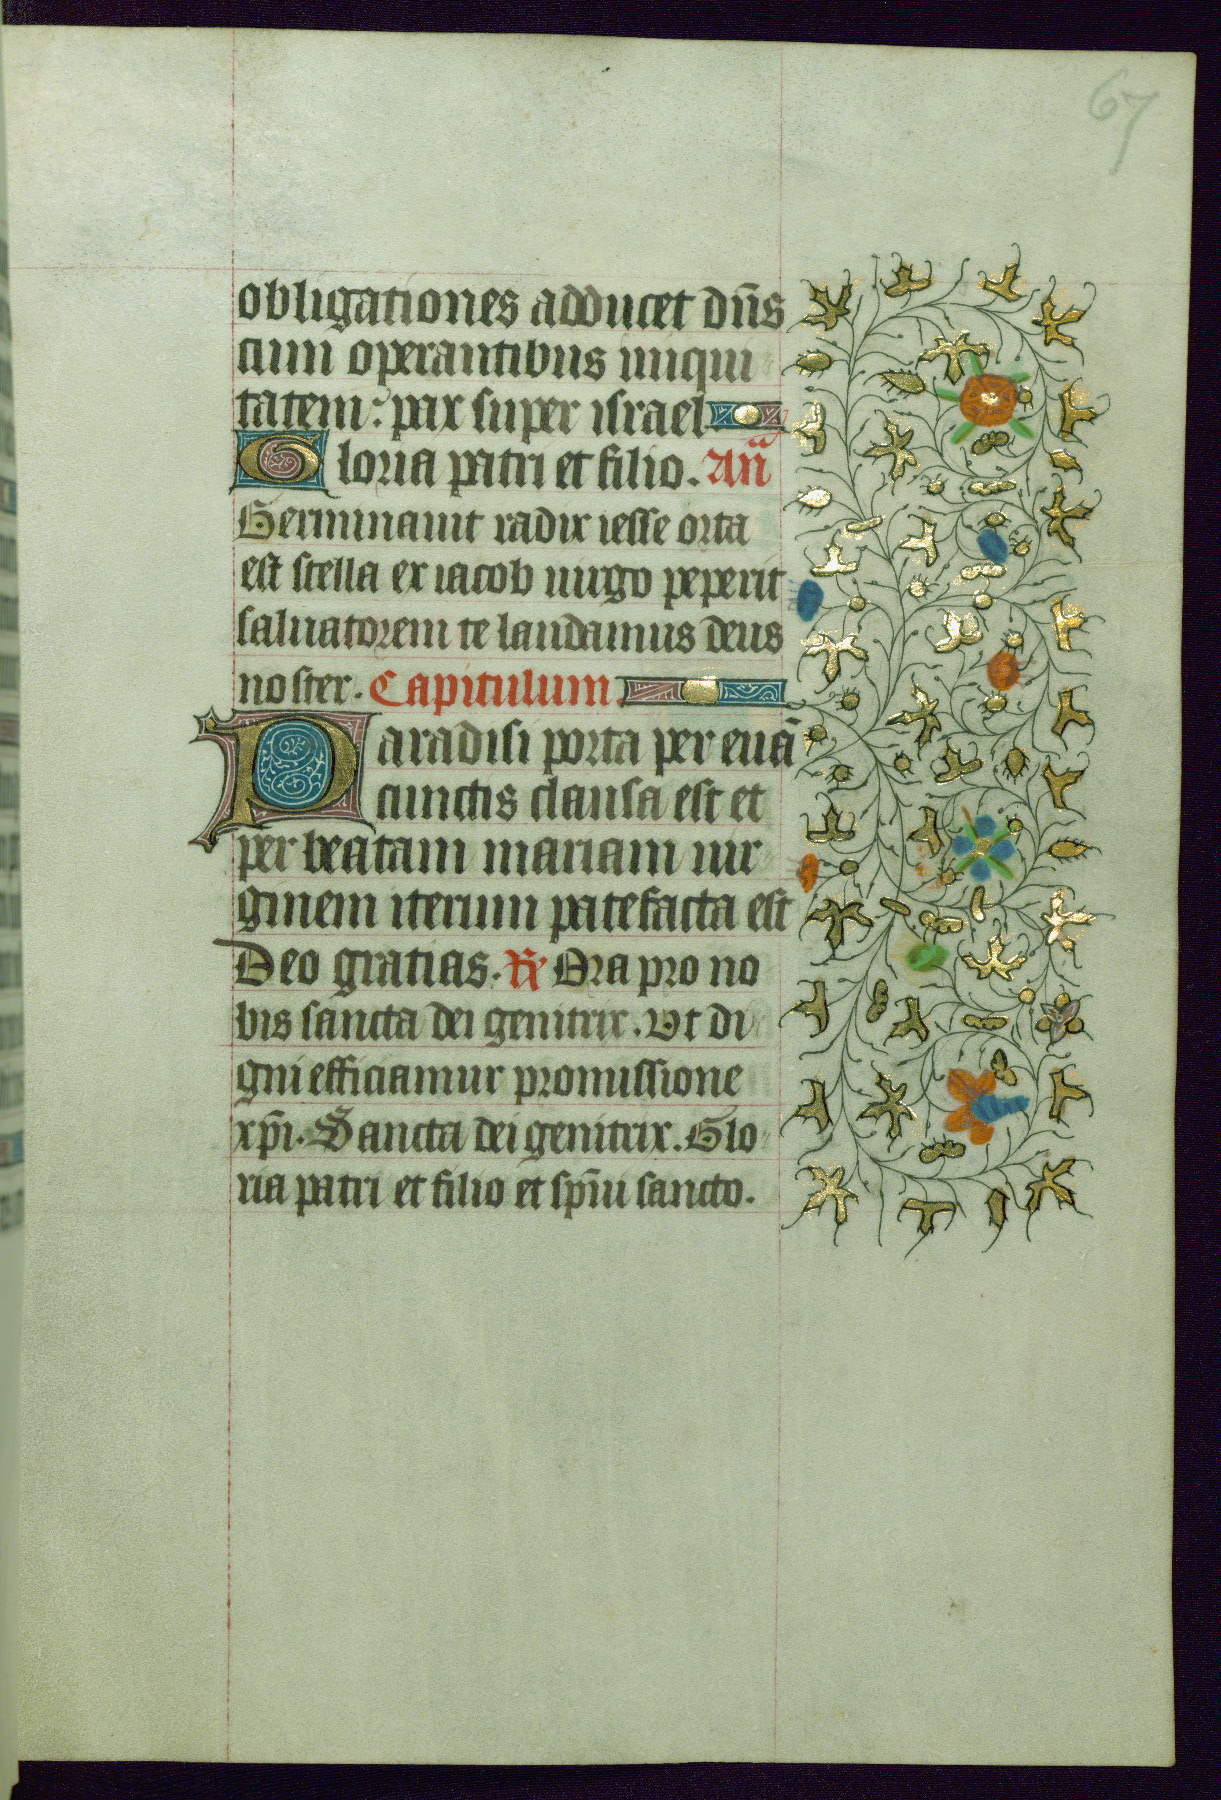 67
obligationes adducet dn̄s
cum operantibus iniqui
tatem: pax super israel
Gloria patri et filio. An̄
Germinauit radix iesse orta
est stella ex iacob uirgo peperit
saluatorem te laudamus deus
noster. Capitulum.
Paradisi porta per euā
cunctis clausa est et
per beatam mariam uir
ginem iterum patefacta est
Deo gratias. R̄ Ora pro no
bis sancta dei genitrix. Vt di
gni efficiamur promissione
xp̄i. Sancta dei genitrix. Glo
ria patri et filio et sp̄iu sancto.